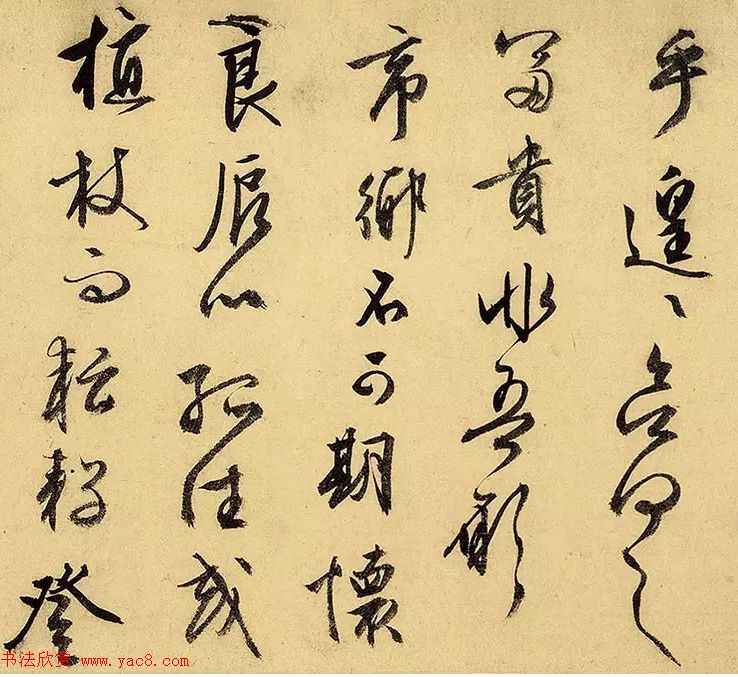 乎遑〻欲何之
富貴非吾願
帝鄉不可期懷
良辰以孤往或
植杖而耘耔登
书法欣赏 www.yac8.com